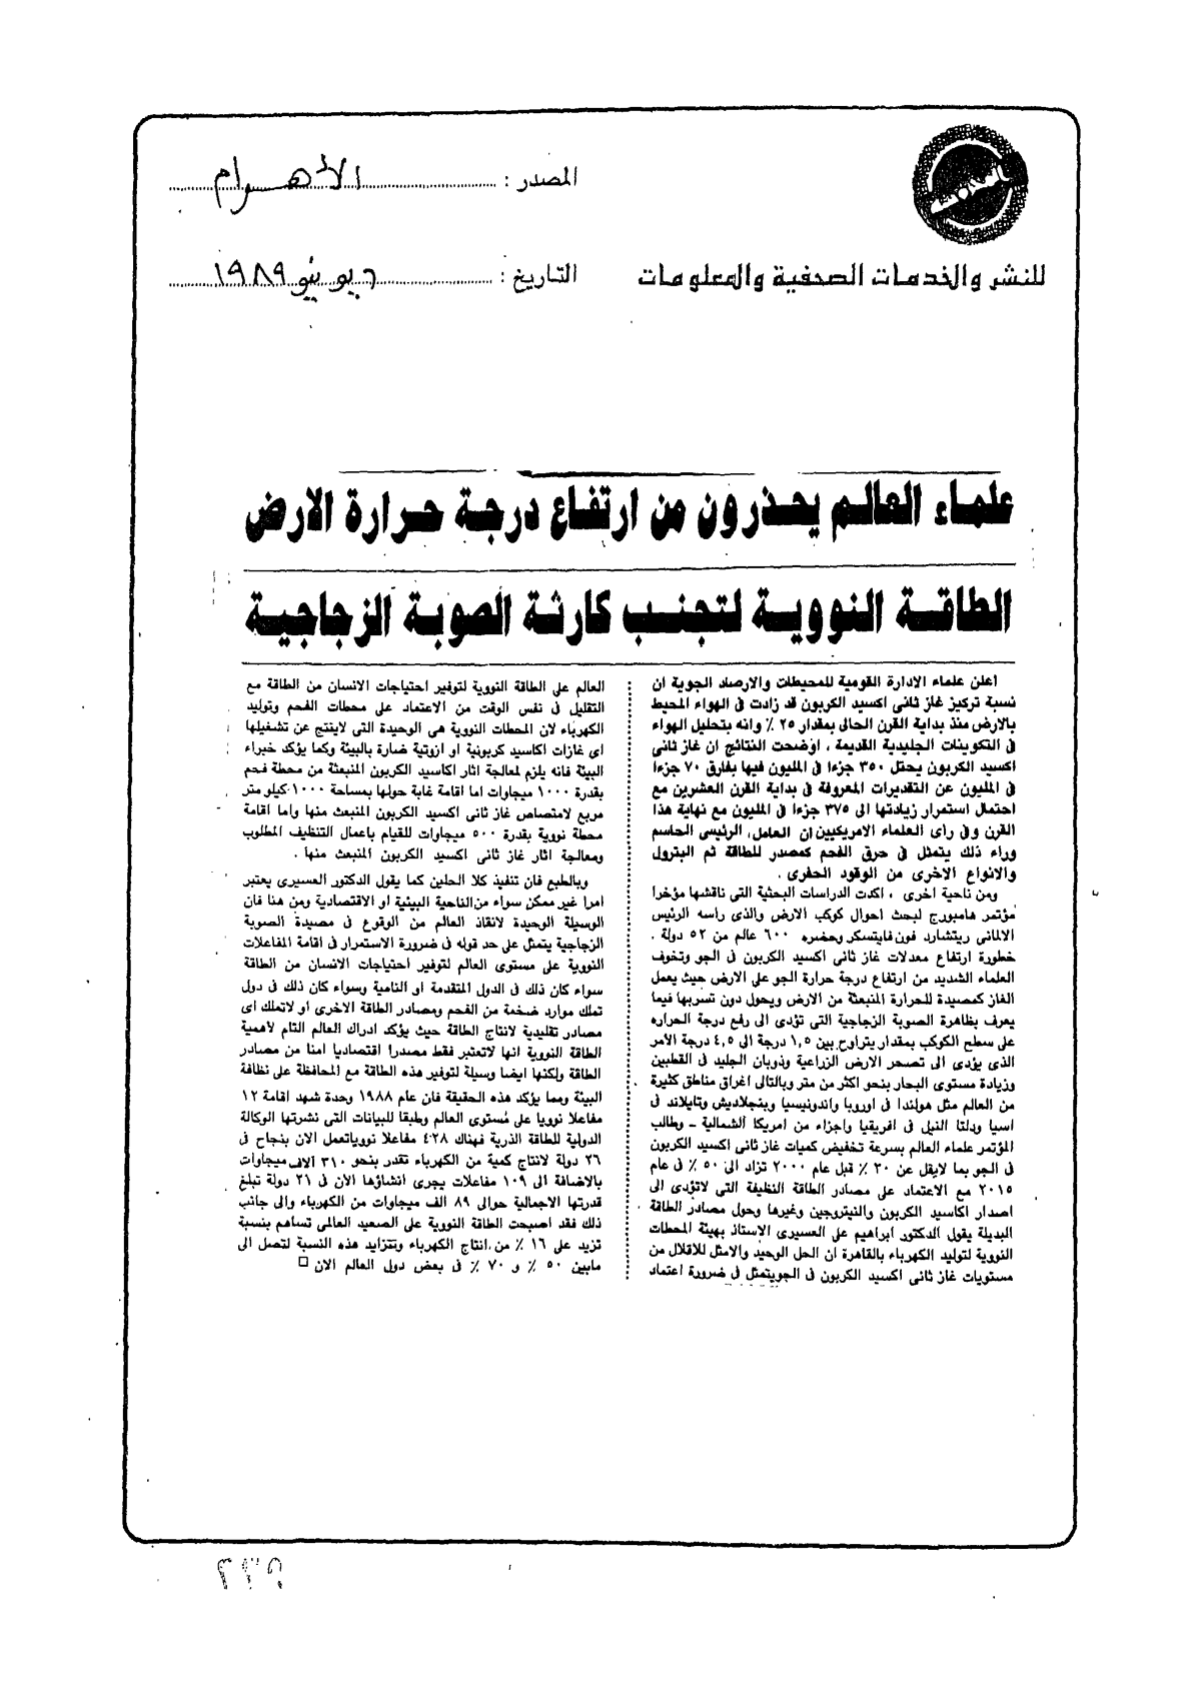 المصدر : الأهرام
للنشر والخدمات الصحفية والمعلومات
التاريخ : ٦ يونيو ١٩٨٩
علماء العالم يحذرون من ارتفاع درجة حرارة الارض
الطاقة النووية لتجنب كارثة الصوبة الزجاجية
اعلن علماء الادارة القومية للمحيطات والارصاد الجوية ان
نسبة تركيز غاز ثانى اكسيد الكربون قد زادت فى الهواء المحيط
بالارض منذ بداية القرن الحالى بمقدار ٢٥ ٪ وانه بتحليل الهواء
فى التكوينات الجليدية القديمة ، اوضحت النتائج ان غاز ثانى
اكسيد الكربون يحتل ٣٥٠ جزءا فى المليون فيها بفارق ٧٠ جزءا
فى المليون عن التقديرات المعروفة فى بداية القرن العشرين مع
احتمال استمرار زيادتها الى ٣٧٥ جزءا فى المليون مع نهاية هذا
القرن وفى راى العلماء الامريكيين ان العامل الرئيسى الحاسم
وراء ذلك يتمثل فى حرق الفحم كمصدر للطاقة ثم البترول
والانواع الاخرى من الوقود الحفرى .
ومن ناحية اخرى ، اكدت الدراسات البحثية التى ناقشها مؤخرا
مؤتمر هامبورج لبحث احوال كوكب الارض والذى راسه الرئيس
الالمانى ريتشارد فون فايتسكر وحضره ٦٠٠ عالم من ٥٢ دولة .
خطورة ارتفاع معدلات غاز ثانى اكسيد الكربون فى الجو وتخوف
العلماء الشديد من ارتفاع درجة حرارة الجو على الارض حيث يعمل
الغاز كمصيدة للحرارة المنبعثة من الارض ويحول دون تسربها فيما
يعرف بظاهرة الصوبة الزجاجية التى تؤدى الى رفع درجة الحراره
على سطح الكوكب بمقدار يتراوح بين ١,٥ درجة الى ٤,٥ درجة الأمر
الذى يؤدى الى تصحر الارض الزراعية وذوبان الجليد فى القطبين
وزيادة مستوى البحار بنحو اكثر من متر وبالتالى اغراق مناطق كثيرة
من العالم مثل هولندا فى اوروبا واندونيسيا وبنجلاديش وتايلاند فى
اسيا ودلتا النيل فى افريقيا واجزاء من امريكا الشمالية - وطالب
المؤتمر علماء العالم بسرعة تخفيض كميات غاز ثانى اكسيد الكربون
فى الجو بما لايقل عن ٣٠ ٪ قبل عام ٢٠٠٠ تزاد الى ٥٠ ٪ فى عام
٢٠١٥ مع الاعتماد على مصادر الطاقة النظيفة التى لاتؤدى الى
اصدار اكاسيد الكربون والنيتروجين وغيرها وحول مصادر الطاقة
البديلة يقول الدكتور ابراهيم على العسيرى الاستاذ بهيئة المحطات
النووية لتوليد الكهرباء بالقاهرة ان الحل الوحيد والامثل للاقلال من
مستويات غاز ثانى اكسيد الكربون فى الجويتمثل فى ضرورة اعتماد
العالم على الطاقة النووية لتوفير احتياجات الانسان من الطاقة مع
التقليل فى نفس الوقت من الاعتماد على محطات الفحم وتوليد
الكهرباء لان المحطات النووية هى الوحيدة التى لاينتج عن تشغيلها
اى غازات اكاسيد كربونية او ازوتية ضارة بالبيئة وكما يؤكد خبراء
البيئة فانه يلزم لمعالجة اثار اكاسيد الكربون المنبعثة من محطة فحم
بقدرة ١٠٠٠ ميجاوات اما اقامة غابة حولها بمساحة ١٠٠٠ كيلو متر
مربع لامتصاص غاز ثانى اكسيد الكربون المنبعث منها واما اقامة
محطة نووية بقدرة ٥٠٠ ميجاوات للقيام باعمال التنظيف المطلوب
ومعالجة اثار غاز ثانى اكسيد الكربون المنبعث منها .
وبالطبع فان تنفيذ كلا الحلين كما يقول الدكتور العسيرى يعتبر
امرا غير ممكن سواء من الناحية البيئية او الاقتصادية ومن هنا فان
الوسيلة الوحيدة لانقاذ العالم من الوقوع فى مصيدة الصوبة
الزجاجية يتمثل على حد قوله فى ضرورة الاستمرار فى اقامة المفاعلات
النووية على مستوى العالم لتوفير احتياجات الانسان من الطاقة
سواء كان ذلك فى الدول المتقدمة او النامية وسواء كان ذلك فى دول
تملك موارد ضخمة من الفحم ومصادر الطاقة الاخرى او لاتملك اى
مصادر تقليدية لانتاج الطاقة حيث يؤكد ادراك العالم التام لأهمية
الطاقة النووية انها لاتعتبر فقط مصدرا اقتصاديا امنا من مصادر
الطاقة ولكنها ايضا وسيلة لتوفير هذه الطاقة مع المحافظة على نظافة
البيئة ومما يؤكد هذه الحقيقة فان عام ١٩٨٨ وحدة شهد اقامة ١٢
مفاعلا نوويا على مستوى العالم وطبقا للبيانات التى نشرتها الوكالة
الدولية للطاقة الذرية فهناك ٤٢٨ مفاعلا نوويا تعمل الان بنجاح فى
٢٦ دولة لانتاج كمية من الكهرباء تقدر بنحو ٣١٠ الاف ميجاوات
بالاضافة الى ١٠٩ مفاعلات يجرى انشاؤها الان فى ٢١ دولة تبلغ
قدرتها الاجمالية حوالى ٨٩ الف ميجاوات من الكهرباء والى جانب
ذلك فقد اصبحت الطاقة النووية على الصعيد العالمى تساهم بنسبة
تزيد على ١٦ ٪ من انتاج الكهرباء وتتزايد هذه النسبة لتصل الى
مابين ٥٠ ٪ و ٧٠ ٪ فى بعض دول العالم الان □